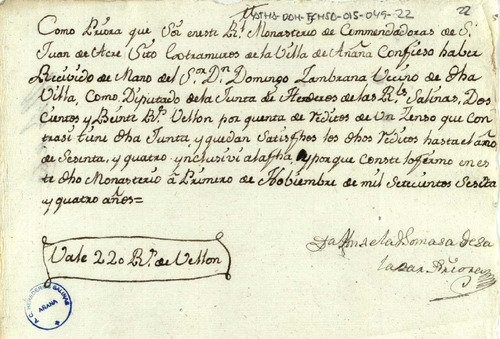 ATHA-DOH-FCHSD-015-049-22
22
Como Priora que Soi en este Rl. Monasterio de Commendadoras de Sn.
Juan de Acre Sito Extramuros de la Villa de Añana Confieso haber
Reciuido de Mano del Sor. Dn. Domingo Zambrana Vecino de dha
Villa, Como Diputado de la Junta de Herederos de las Rs. Salinas, Dos
Cientos y Beinte Rs. Vellon por quenta de Reditos de Un Zenso que con
tra si tiene dha Junta, y quedan Satisfhos los dhos Reditos hasta el año
de Sesenta, y quatro ynclusive a la fha, y porque Conste lo firmo en es
te dho Monasterio â Primero de Nobiembre de mil Setecientos Sesenta
y quatro años=
Vale 220 Rs. de Vellon
Da. Ansela Thomasa de Sa
lazar Priora
A.C. HEREDEROS SALINAS
AÑANA